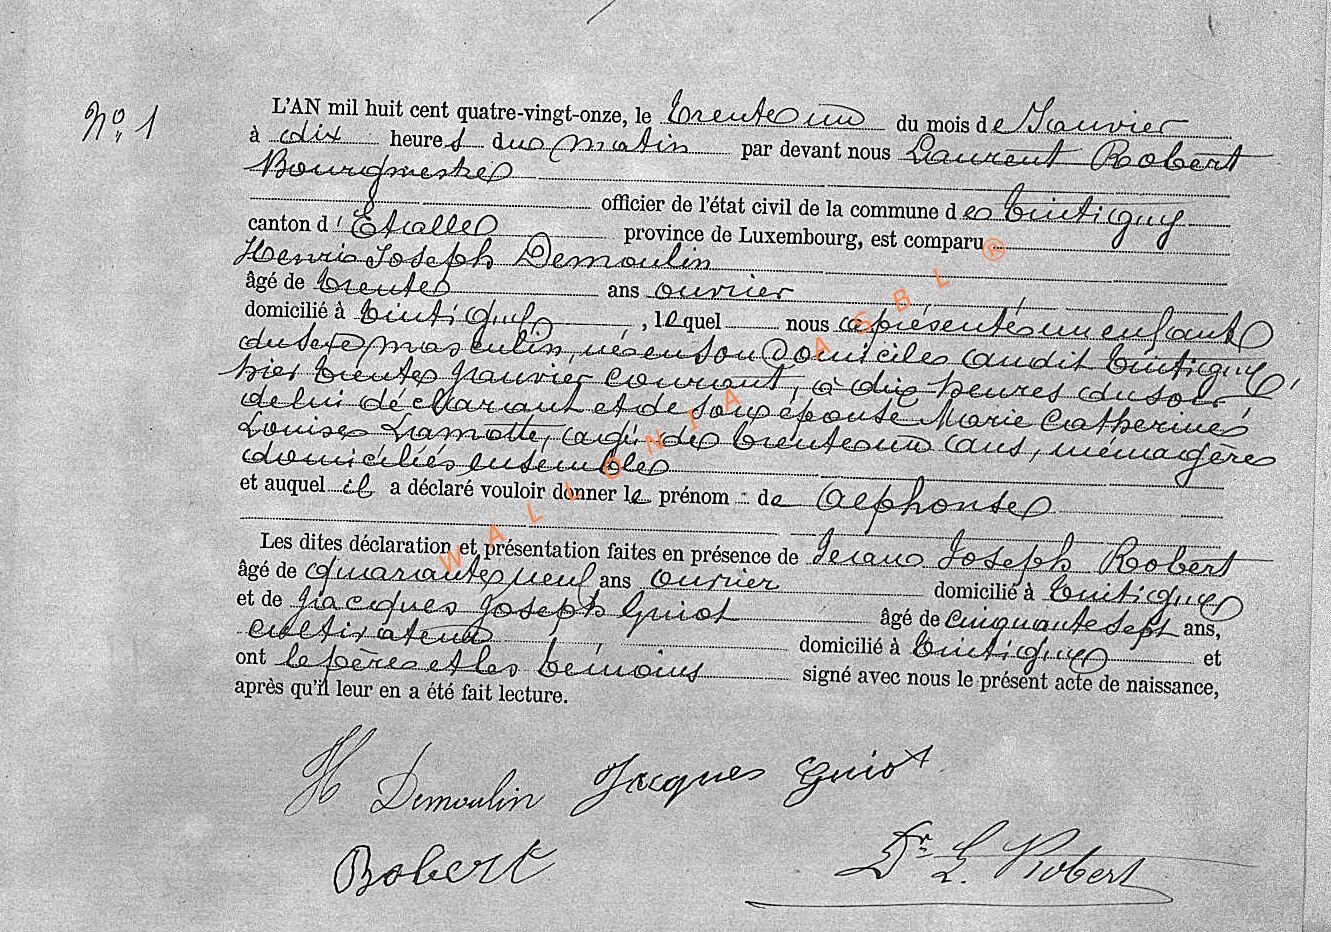 No 1
L'AN mil huit cent quatre-vingt-onze, le trente un du mois de Janvier
à dix heures du matin par devant nous Laurent Robert
Bourgmestre
officier de l'état civil de la commune de Tintigny
canton d'Etalle province de Luxembourg, est comparu
Henri Joseph Demoulin
âgé de trente ans ouvrier
domicilié à Tintigny, lequel nous a présenté un enfant
du sexe masculin, né en son domicile audit Tintigny,
hier trente Janvier courant, à dix heures du soir
de lui déclarant et de son épouse Marie Catherine
Louise Lamotte, agée de trente un ans, ménagère
domiciliés ensemble
et auquel il a déclaré vouloir donner le prénom : de Alphonse
Les dites déclaration et présentation faites en présence de Jean Joseph Robert
âgé de quarante neuf ans ouvrier domicilié à Tintigny
et de Jacques Joseph Guiot âgé de cinquante sept ans,
cultivateur domicilié à Tintigny et
ont le père et les témoins signé avec nous le présent acte de naissance,
après qu'il leur en a été fait lecture.
WALLONIA ASBL ®
H Demoulin Jacques Guiot
Robert
Dr. L. Robert